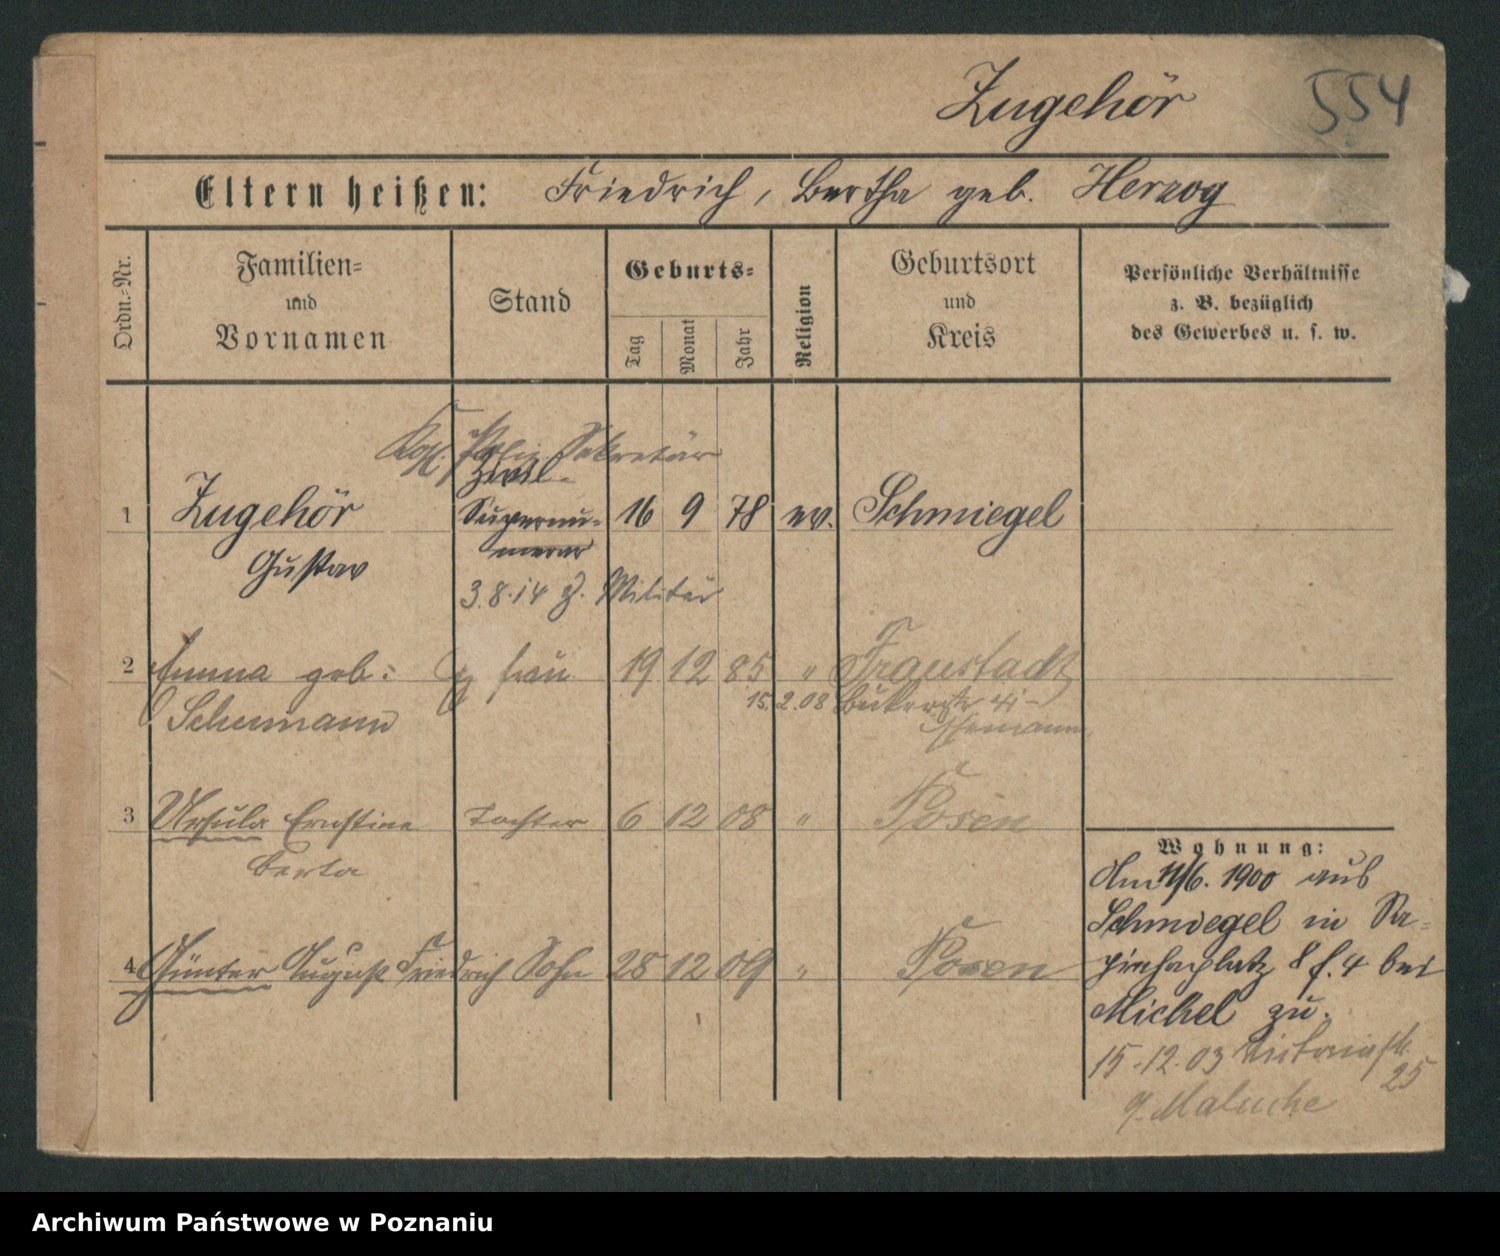 Zugehör 554
Eltern heißen: Friedrich, Bertha geb. Herzog
Ordn.-Nr.
Familien-
und
Vornamen
Stand
Geburts-
Tag
Monat
Jahr
Religion
Geburtsort
und
Kreis
Persönliche Verhältnisse
z. B. bezüglich
des Gewerbes u. s. w.
Kgl. Poliz. Sekretär
Zivil-
1 Zugehör Supernu- 16 9 78 ev. Schmiegel
Gustav merar
3.8.14 z. Militär
2 Emma geb: Frau 19 12 85 " Fraustadt
Schumann
15.2.08
Ehemann
3 Ursula Ernstine Tochter 6 12 08 " Posen
Berta
4 Günter August Friedrich Sohn 28 12 09 " Posen
Wohnung:
Am 11/6. 1900 aus
Schmiegel in Sa-
piehaplatz 8 f. 4 bei
Michel zu.
15.12.03 Victoriastr.
25
Maluche
Archiwum Państwowe w Poznaniu